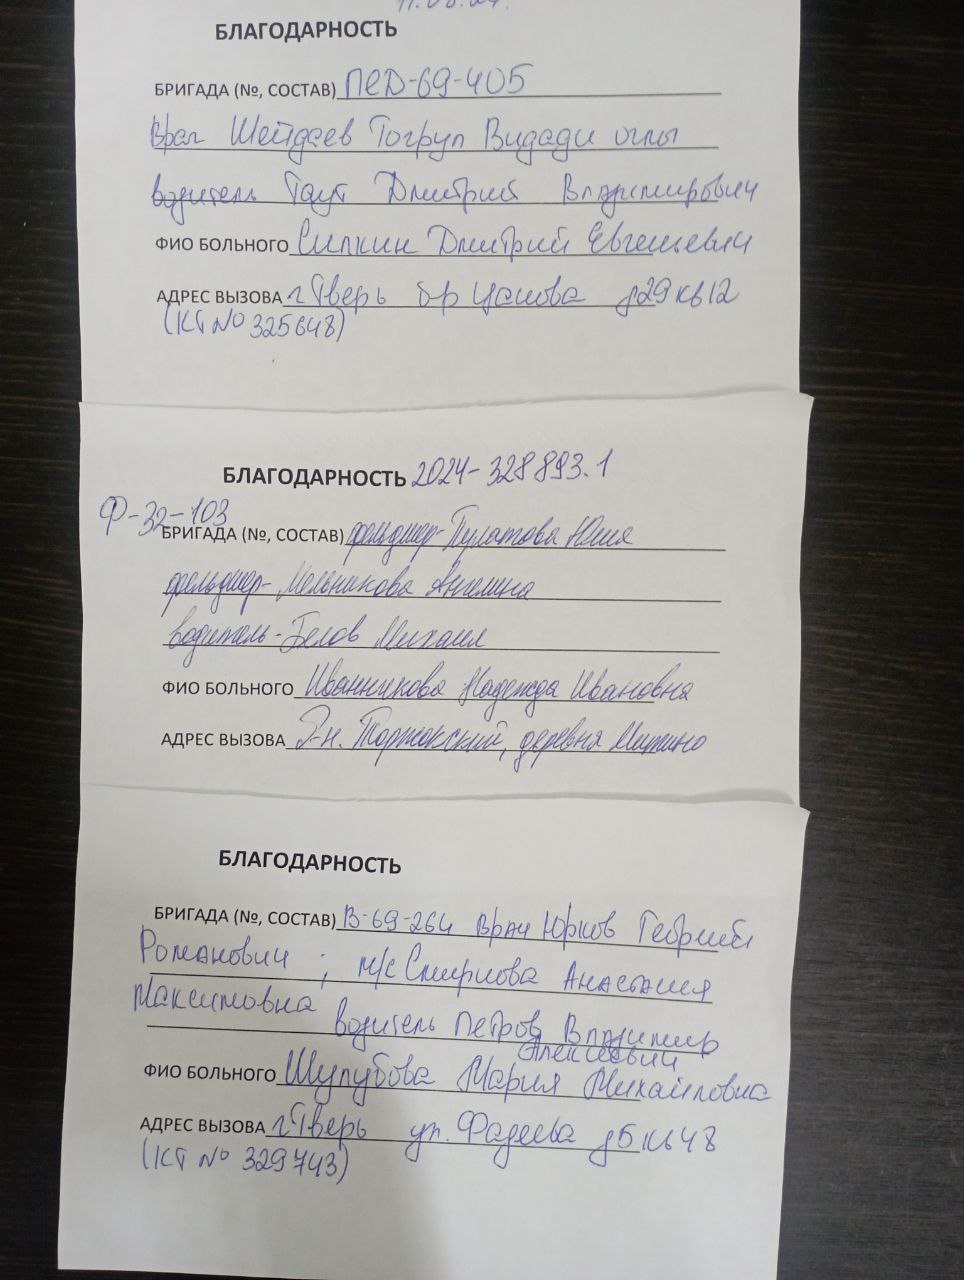 БЛАГОДАРНОСТЬ
БРИГАДА (№, СОСТАВ) ПЕД-69-405
Врач Шейдаев Тогрул Видади оглы
водитель Таут Дмитрий Владимирович
ФИО БОЛЬНОГО Силкин Дмитрий Евгеньевич
АДРЕС ВЫЗОВА г Тверь б-р Цанова д29 кв12
(КТ № 325648)
БЛАГОДАРНОСТЬ 2024-328893.1
Ф-32-103
БРИГАДА (№, СОСТАВ) фельдшер-Пулатова Юлия
фельдшер-Мельникова Ангелина
водитель-Белов Михаил
ФИО БОЛЬНОГО Иванникова Надежда Ивановна
АДРЕС ВЫЗОВА Р-н. Торжокский, деревня Митино
БЛАГОДАРНОСТЬ
БРИГАДА (№, СОСТАВ) В-69-264 врач Юрков
Романович ; м/с Смирнова Анастасия
Максимовна
водитель Петров Владимир
Алексеевич
ФИО БОЛЬНОГО Шулубова Мария Михайловна
АДРЕС ВЫЗОВА г Тверь ул. Фадеева д5 кв48
(КТ № 329743)